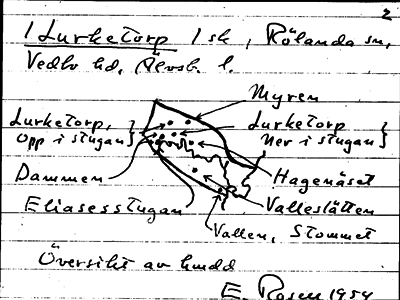 2
Lurketorp 1 sk, Rölanda sn,
Vedbo hd, Älvsb. l.
Myren
Lurketorp, Opp i stugan
Lurketorp Ner i stugan
Dammen
Hagenäset
Eliasesstugan
Valleslätten
Vallen, Stommet
Översikt av
E. Rosell 1954